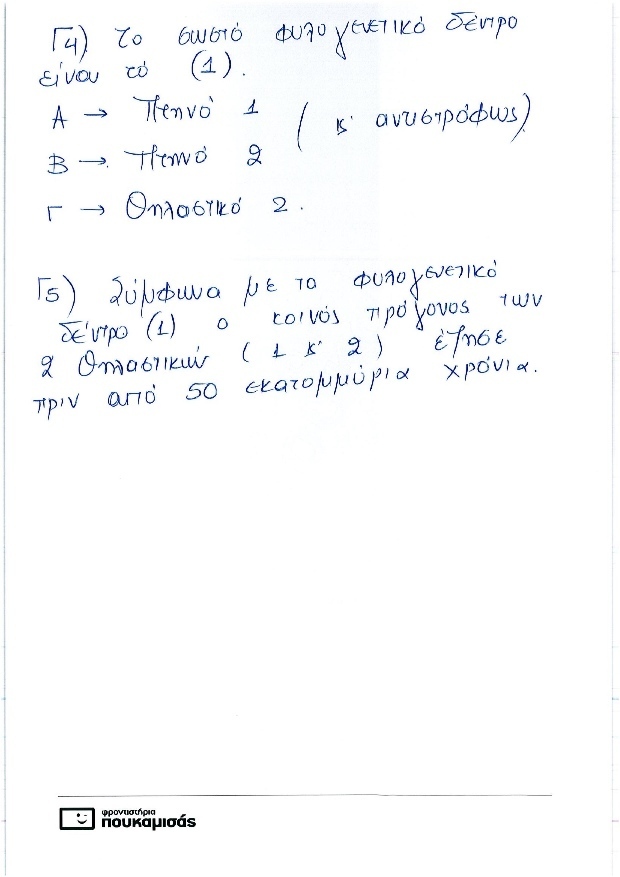 Γ4) Το σωστό φυλογενετικό δέντρο
είναι τό (1).
Α → Πτηνό 1
( κ' αντιστρόφως)
Β → Πτηνό 2
Γ → Θηλαστικό 2.
Γ5) Σύμφωνα με το φυλογενετικό
δέντρο (1) ο κοινός πρόγονος των
2 Θηλαστικών ( 1 κ' 2 ) έζησε
πριν από 50 εκατομμύρια χρόνια.
φροντιστήρια
πουκαμισάς